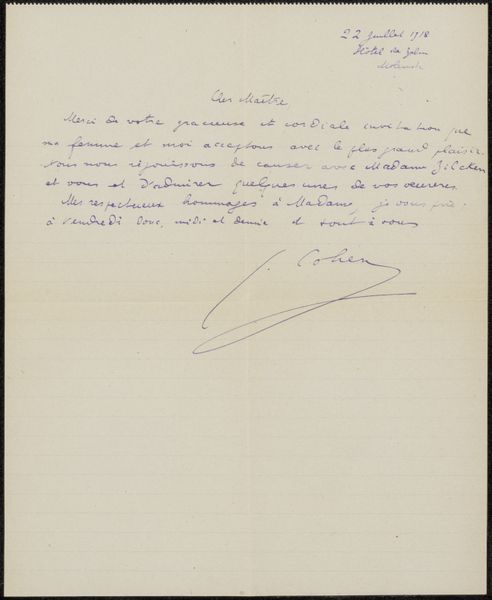 22 juillet 1918
Hôtel de
Cher Maître
Merci de votre gracieuse et cordiale invitation que
ma femme et moi acceptons avec le plus grand plaisir.
Nous nous réjouissons de causer avec Madame Zilcken
et vous et d'admirer quelques unes de vos œuvres.
Mes respectueux hommages à Madame, je vous prie.
à vendredi donc, midi et demie et tout à vous
J. Cohen